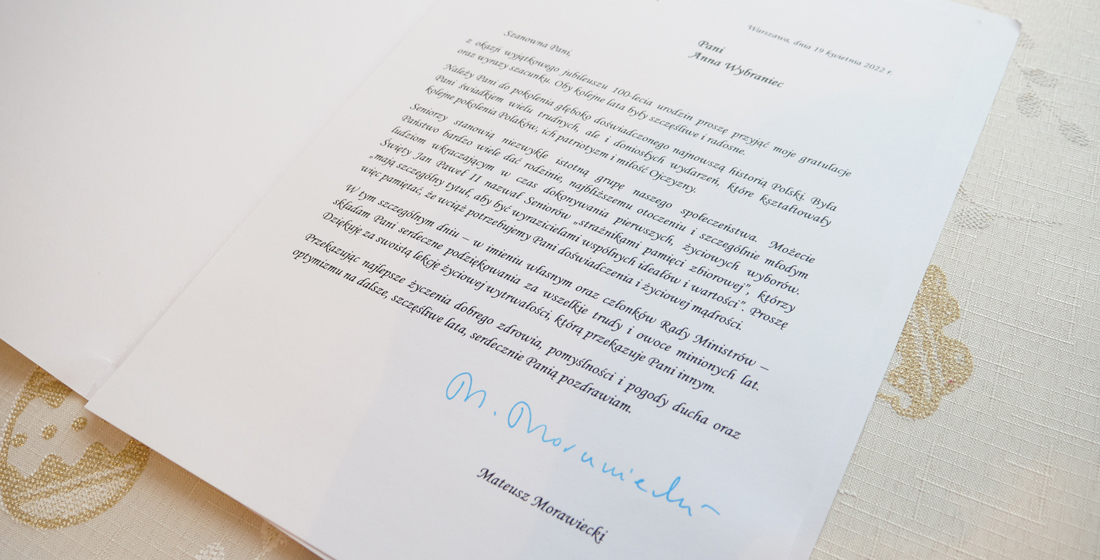 Warszawa, dnia 19 kwietnia 2022 r.
Pani
Anna Wybraniec
Szanowna Pani,
z okazji wyjątkowego jubileuszu 100-lecia urodzin proszę przyjąć moje gratulacje
oraz wyrazy szacunku. Oby kolejne lata były szczęśliwe i radosne.
Należy Pani do pokolenia głęboko doświadczonego najnowszą historią Polski. Była
Pani świadkiem wielu trudnych, ale i doniosłych wydarzeń, które kształtowały
kolejne pokolenia Polaków, ich patriotyzm i miłość Ojczyzny.
Seniorzy stanowią niezwykle istotną grupę naszego społeczeństwa. Możecie
Państwo bardzo wiele dać rodzinie, najbliższemu otoczeniu i szczególnie młodym
ludziom wkraczającym w czas dokonywania pierwszych, życiowych wyborów.
Święty Jan Paweł II nazwał Seniorów „strażnikami pamięci zbiorowej”, którzy
„mają szczególny tytuł, aby być wyrazicielami wspólnych ideałów i wartości”. Proszę
więc pamiętać, że wciąż potrzebujemy Pani doświadczenia i życiowej mądrości.
W tym szczególnym dniu – w imieniu własnym oraz członków Rady Ministrów –
składam Pani serdeczne podziękowania za wszelkie trudy i owoce minionych lat.
Dziękuję za swoistą lekcję życiowej wytrwałości, którą przekazuje Pani innym.
Przekazując najlepsze życzenia dobrego zdrowia, pomyślności i pogody ducha oraz
optymizmu na dalsze, szczęśliwe lata, serdecznie Panią pozdrawiam.
M. Morawiecki
Mateusz Morawiecki